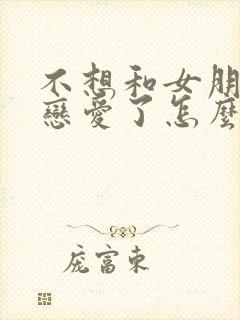 不想和女朋
戀愛了怎麼
庞富東